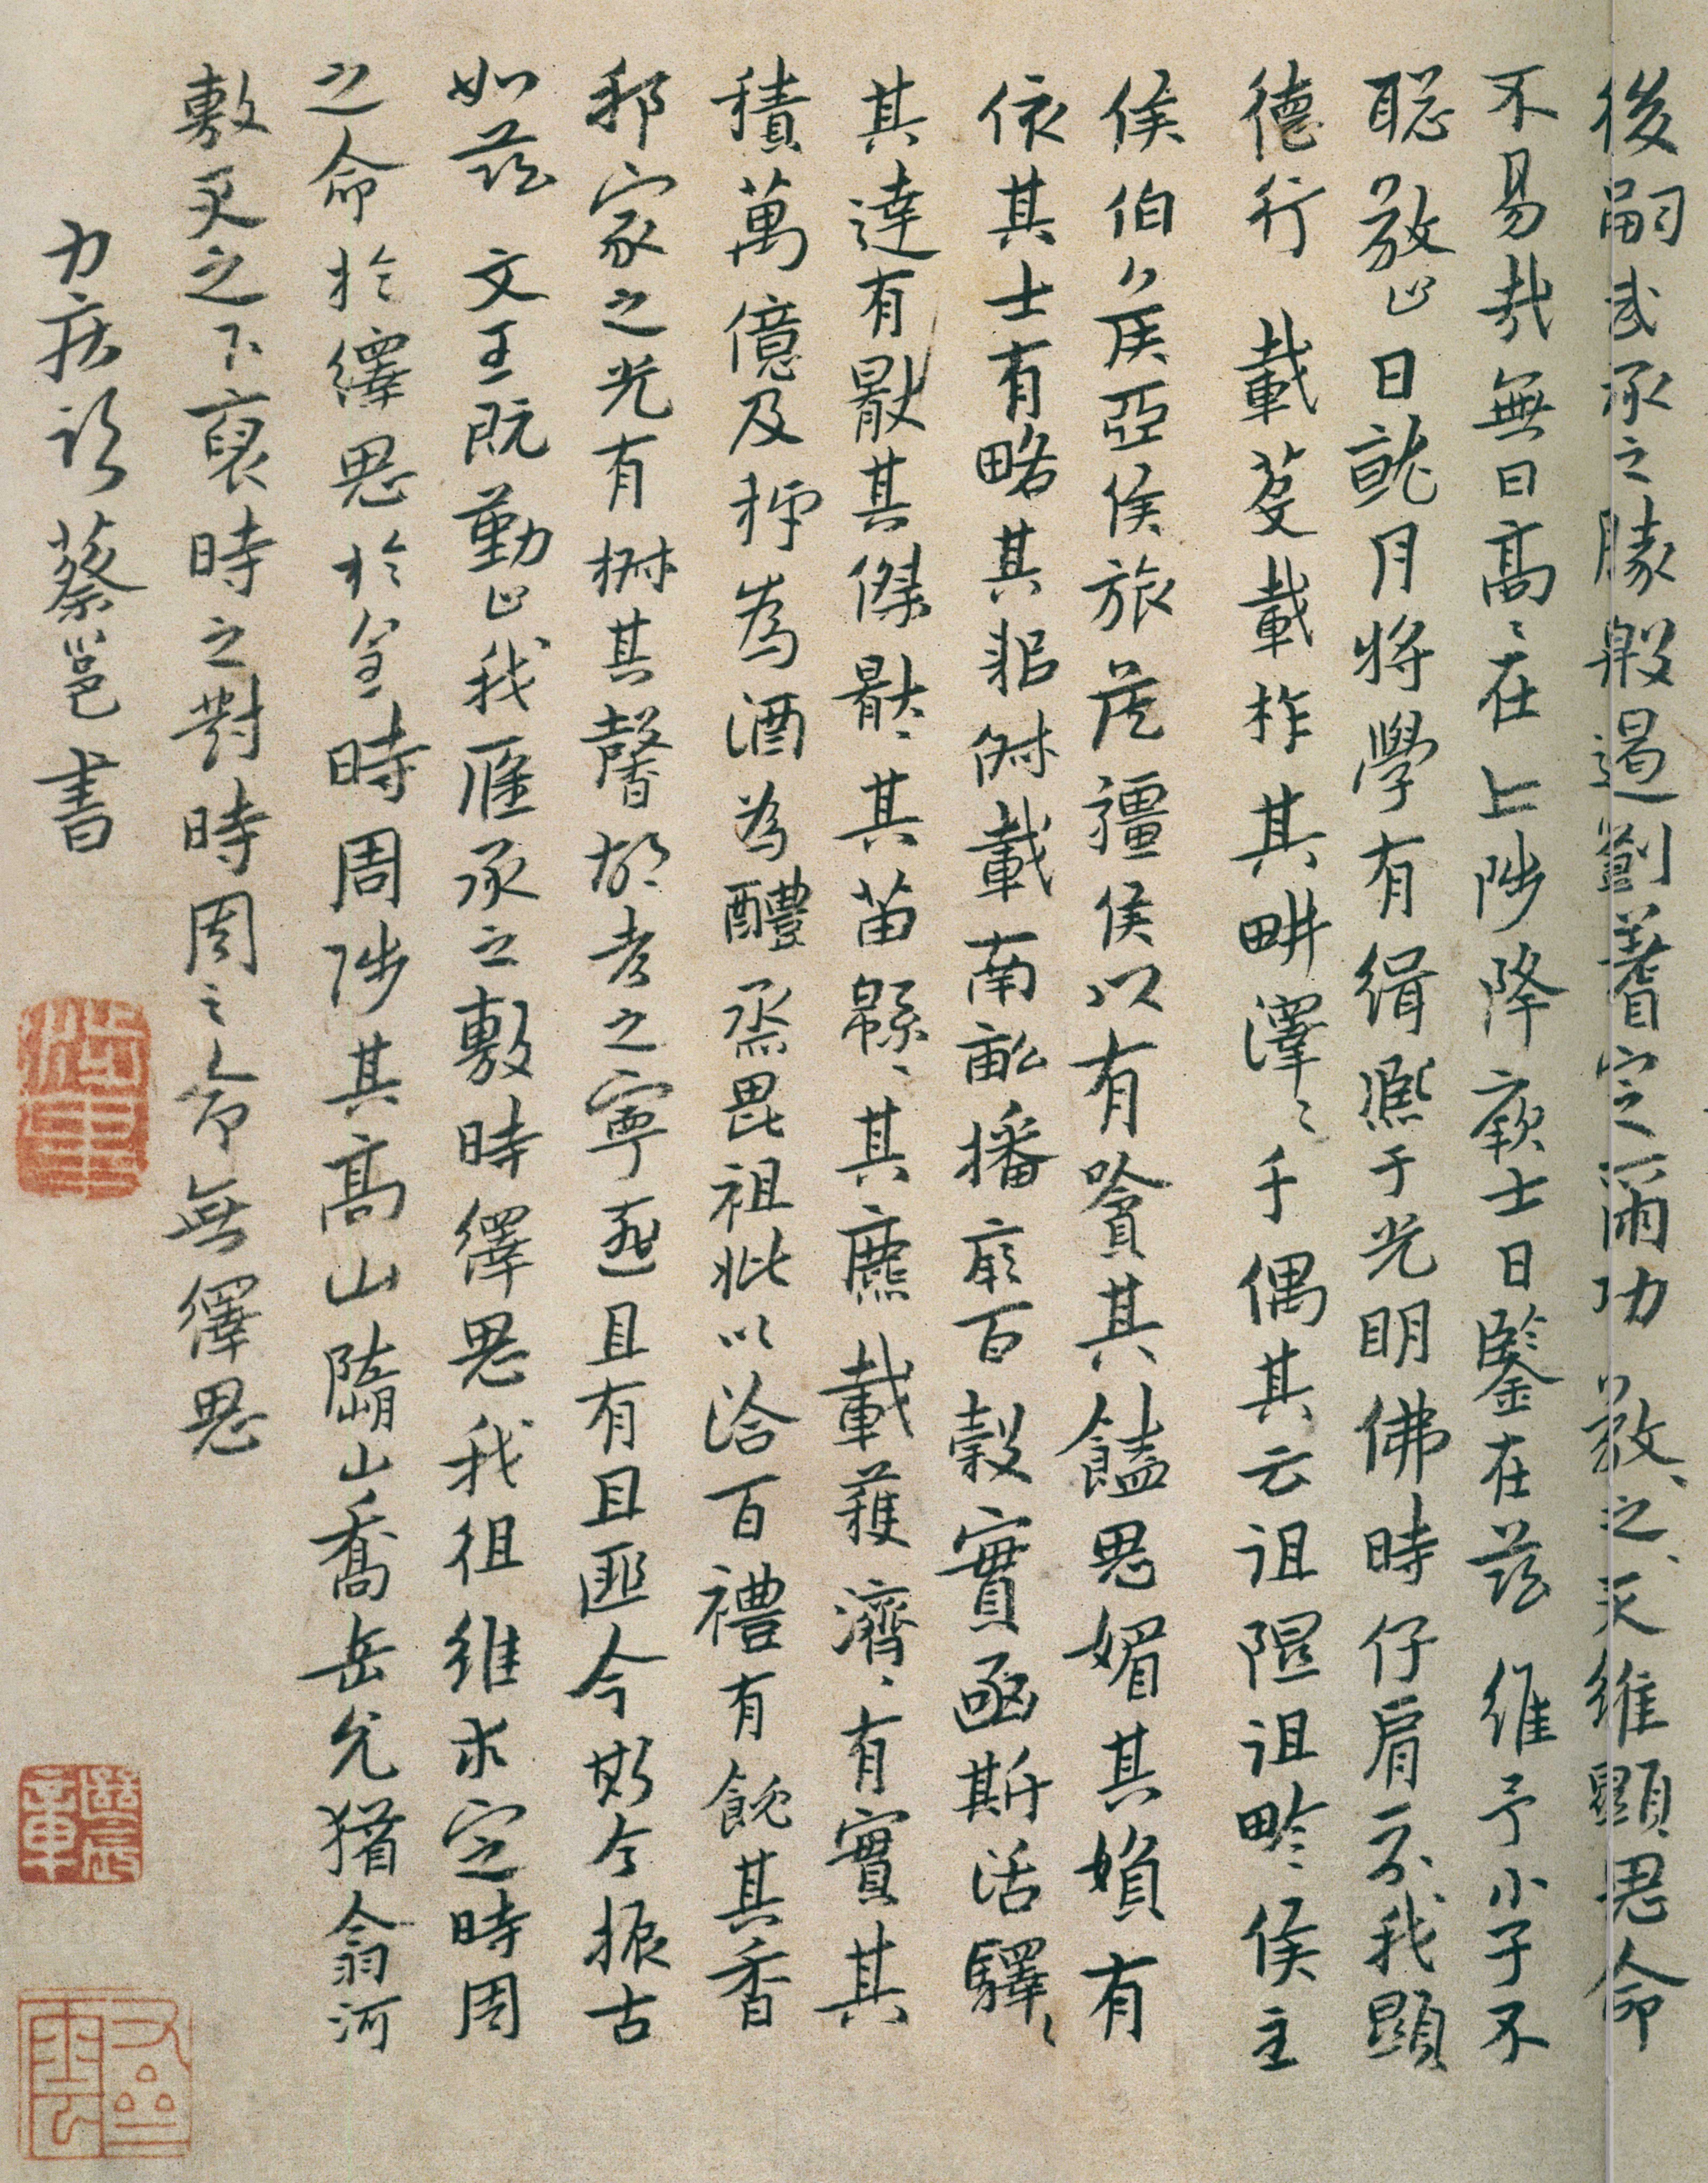 後嗣武承之勝殷遏劉耆定爾功 敬〻之〻天維顯思命
不易哉無曰高〻在上陟降厥士日鑒在茲 維予小子不
聡敬止日就月將學有緝熙于光明佛時仔肩示我顯
德行 載芟載柞其畊澤〻千偶其云徂隰徂畛侯主
侯伯侯亞侯旅侯彊侯以有嗿其饁思媚其媍有
依其士有略其耜俶載南畝播厥百穀實函斯活驛〻
其達有厭其傑厭〻其苗緜〻其麃載獲濟〻有實其
積萬億及秭為酒為醴烝畀祖妣以洽百禮有飶其香
邦家之光有椒其馨胡考之寧匪且有且匪今斯今振古
如茲 文王既勤止我應承之敷時繹思我徂維求定時周
之命於繹思於皇時周陟其高山隨山喬岳允猶翕河
敷天之下裒時之對時周之命無繹思
力疾蔡邕書